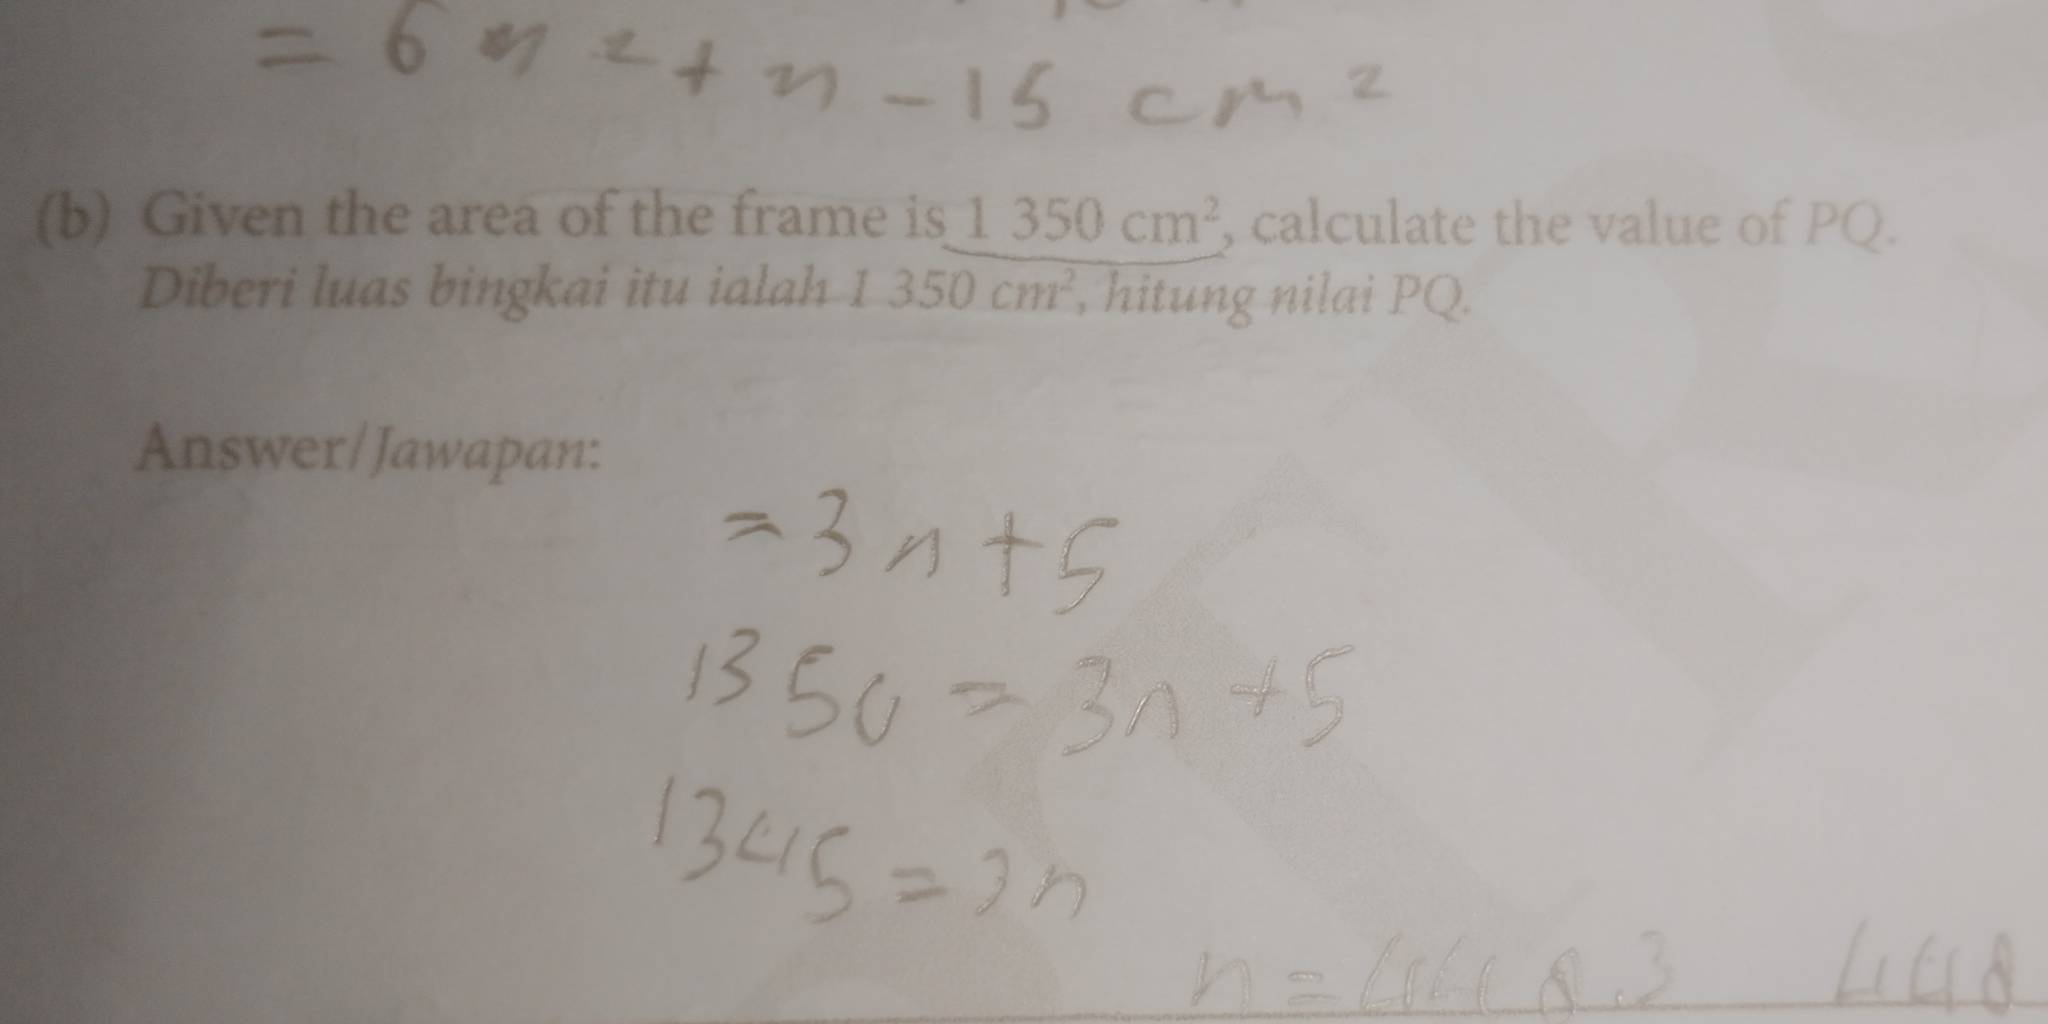 = 6n² + n - 15 cm²
(b) Given the area of the frame is 1 350 cm², calculate the value of PQ.
Diberi luas bingkai itu ialah 1 350 cm², hitung nilai PQ.
Answer/Jawapan:
= 3n + 5
1350 = 3n + 5
1345 = 3n
n = 448.3 448